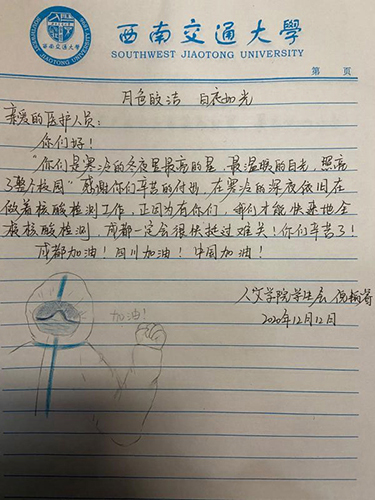 西南交通大学
SOUTHWEST JIAOTONG UNIVERSITY
第 页
月色皎洁 白衣如光
亲爱的医护人员:
你们好!
"你们是寒冷的冬夜里最亮的星,最温暖的月光,照亮
了整个校园"感谢你们辛苦的付出,在寒冷的深夜依旧在
做着核酸检测工作,正因为有你们,我们才能快速地全
员核酸检测,成都一定会很快挺过难关!你们辛苦了!
成都加油!四川加油!中国加油!
加油!
人文学院学生 倪
2020年12月12日